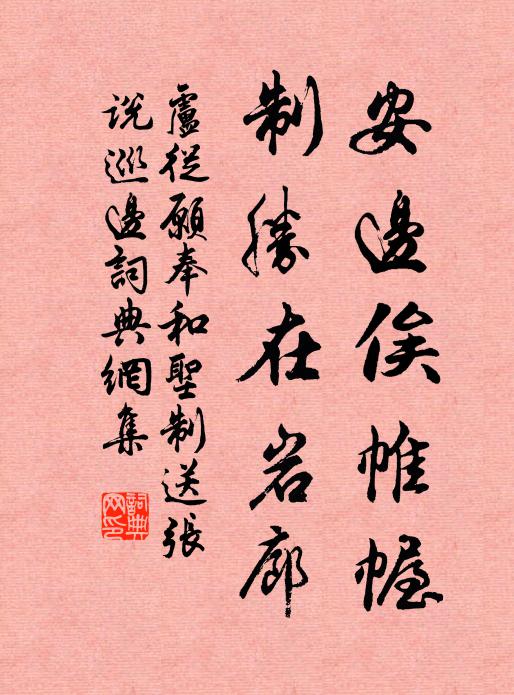 安邊俟帷幄
制勝在岩廊
盧從願奉和聖制送張
説巡邊詞典網集
詞典网印